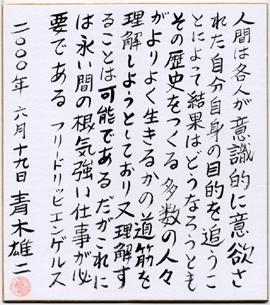 人間は各人が意識的に意欲さ
れた自分自身の目的を追うこ
とによって結果はどうなろうとも
その歴史をつくる 多数の人々
がよりよく生きるかの道筋を
理解しようとしており 又理解す
ることは可能である だがこれに
は永い間の根気強い仕事が必
要である フリードリッヒエンゲルス
二〇〇〇年 六月十九日 青木雄二